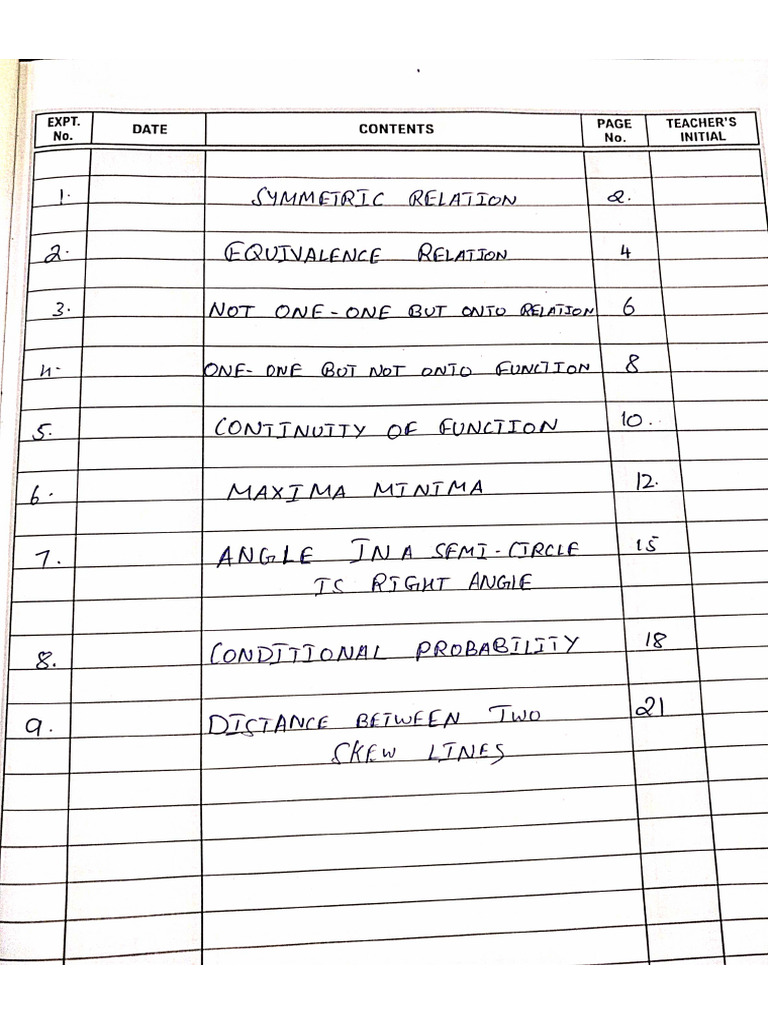 EXPT. No. DATE CONTENTS PAGE No. TEACHER'S INITIAL
1. SYMMETRIC RELATION 2.
2. EQUIVALENCE RELATION 4
3. NOT ONE-ONE BUT ONTO RELATION 6
4. ONE-ONE BUT NOT ONTO FUNCTION 8
5. CONTINUITY OF FUNCTION 10.
6. MAXIMA MINIMA 12.
7. ANGLE IN A SEMI-CIRCLE 15
IS RIGHT ANGLE
8. CONDITIONAL PROBABILITY 18
9. DISTANCE BETWEEN TWO 21
SKEW LINES